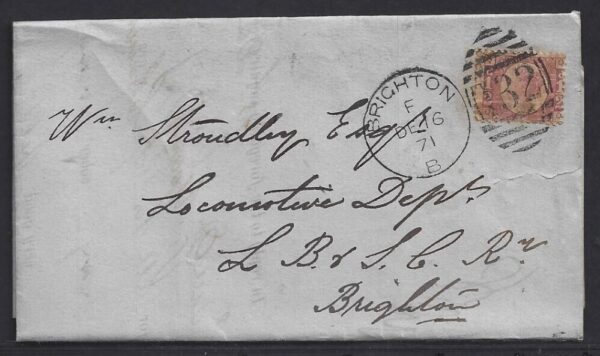 BRIGHTON
F
DE 16
71
B
132
Wm Stroudley Esqr
Locomotive Dept
L B & S. C. Ry
Brighton